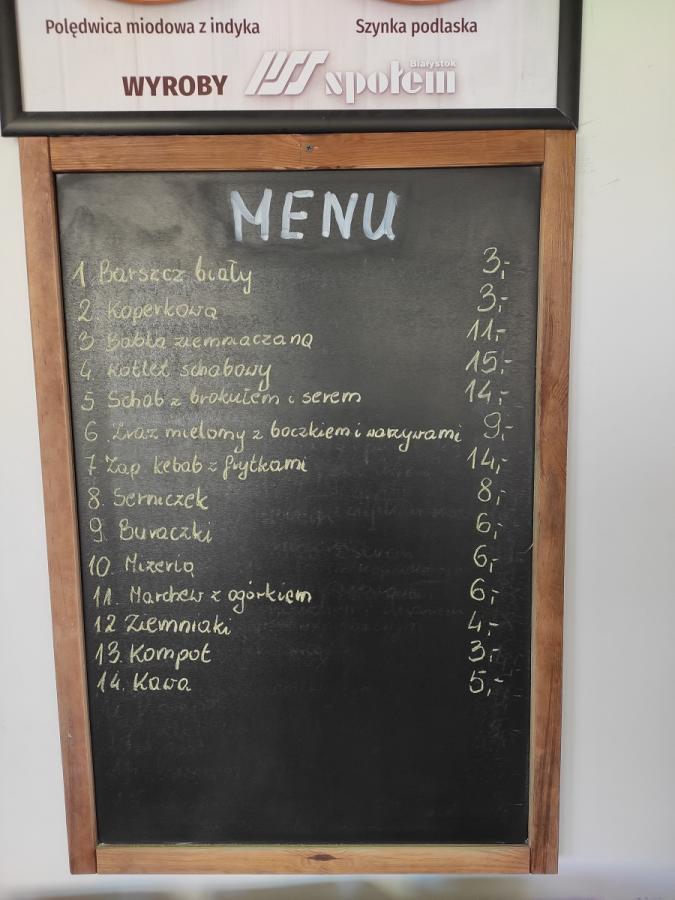 Polędwica miodowa z indyka Szynka podlaska
WYROBY PSS społem Białystok
MENU
1 Barszcz biały 3,-
2 Koperkowa 3,-
3 Babka ziemniaczana 11,-
4 Kotlet schabowy 15,-
5 Schab z brokułem i serem 14,-
6. Zraz mielony z boczkiem i warzywami 9,-
7. Zap kebab z frytkami 14,-
8. Serniczek 8,-
9. Buraczki 6,-
10. Mizeria 6,-
11. Marchew z ogórkiem 6,-
12 Ziemniaki 4,-
13. Kompot 3,-
14. Kawa 5,-